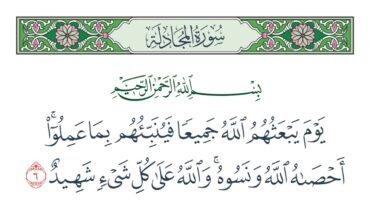 سُورَةُ المُجَادلَة
بِسْمِ اللَّهِ الرَّحْمَٰنِ الرَّحِيمِ
يَوْمَ يَبْعَثُهُمُ اللَّهُ جَمِيعًا فَيُنَبِّئُهُم بِمَا عَمِلُوٓا۟ ۚ
أَحْصَىٰهُ اللَّهُ وَنَسُوهُ ۚ وَاللَّهُ عَلَىٰ كُلِّ شَىْءٍ شَهِيدٌ ٦